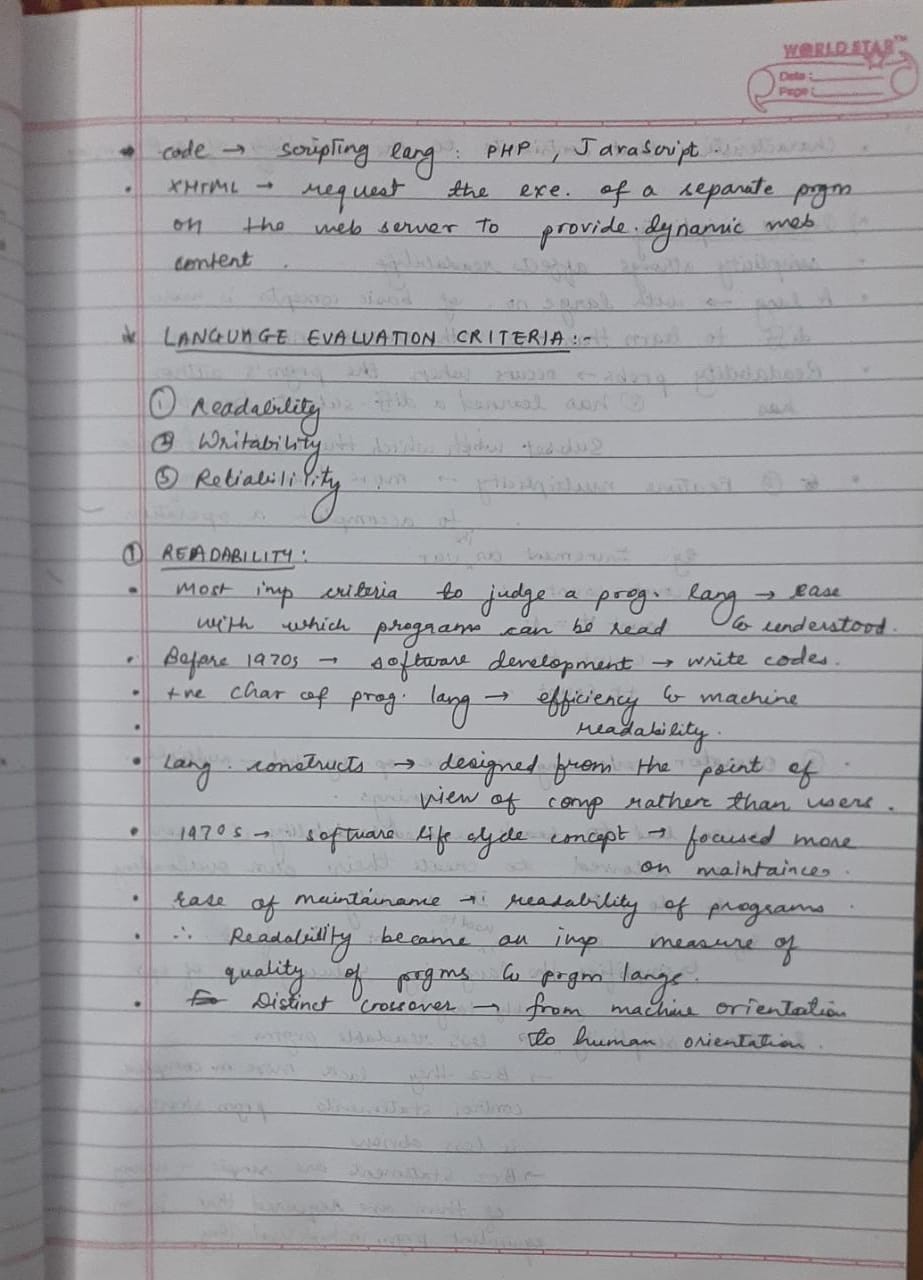 WORLD STAR™
Date :
Page :
• code → scripting lang : PHP , JavaScript .
• XHTML → request the exe. of a separate prgm
on the web server to provide dynamic web
content .
* LANGUAGE EVALUATION CRITERIA :-
① Readability
② Writability
③ Reliability
① READABILITY :
• Most imp criteria to judge a prog. lang → ease
with which programs can be read & understood.
• Before 1970s → software development → write codes.
• +ve char of prog. lang → efficiency & machine
• readability.
• Lang. constructs → designed from the point of
view of comp rather than users .
• 1970s → software life clyde concept → focused more
on maintainces .
• Ease of maintainame → readability of programs .
• ∴ Readability became an imp measure of
quality of prgms & prgm langs.
• Distinct crossover → from machine orientation
to human orientation .